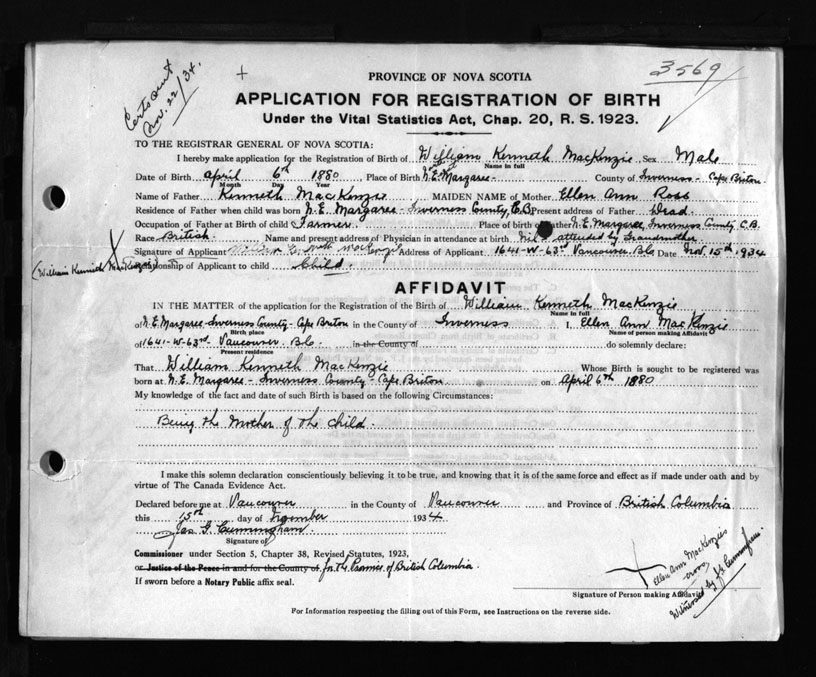 Certs out
Nov. 22/34.
+
3569
PROVINCE OF NOVA SCOTIA
APPLICATION FOR REGISTRATION OF BIRTH
Under the Vital Statistics Act, Chap. 20, R. S. 1923.
TO THE REGISTRAR GENERAL OF NOVA SCOTIA:
I hereby make application for the Registration of Birth of William Kenneth MacKenzie Sex Male
Name in full
Date of Birth April 6th 1880 Place of Birth N.E. Margaree- County of Inverness - Cape Briton
Month Day Year
Name of Father Kenneth MacKenzie MAIDEN NAME of Mother Ellen Ann Ross
Residence of Father when child was born N.E. Margaree - Inverness County, C.B. Present address of Father Dead
Occupation of Father at Birth of child Farmer Place of birth of Father N.E. Margaree, Inverness County C.B.
Race British. Name and present address of Physician in attendance at birth Nil - attended by Grandmother
Signature of Applicant MacKenzie Address of Applicant 1641-W-63rd Vancouver B.C. Date Nov. 15th, 1934
(William Kenneth MacKenzie) Relationship of Applicant to child Child.
AFFIDAVIT
IN THE MATTER of the application for the Registration of the Birth of William Kenneth MacKenzie
Name in full
of N.E. Margaree - Inverness County - Cape Briton in the County of Inverness I, Ellen Ann MacKenzie
Birth place Name of person making Affidavit
of 1641-W-63rd. Vancouver B.C. in the County of do solemnly declare:
Present residence
That William Kenneth MacKenzie Whose Birth is sought to be registered was
born at N.E. Margaree - Inverness County - Cape Briton on April 6th 1880
My knowledge of the fact and date of such Birth is based on the following Circumstances:
Being the Mother of the Child.
I make this solemn declaration conscientiously believing it to be true, and knowing that it is of the same force and effect as if made under oath and by
virtue of The Canada Evidence Act.
Declared before me at Vancouver in the County of Vancouver and Province of British Columbia
this 15th day of November 1934
Jas G. Cunningham
Signature of
Commissioner under Section 5, Chapter 38, Revised Statutes, 1923,
or Justice of the Peace in and for the County of for the Province of British Columbia.
If sworn before a Notary Public affix seal.
Ellen Ann MacKenzies
cross
Witnessed by J.G. Cunningham
Signature of Person making Affidavit
For Information respecting the filling out of this Form, see Instructions on the reverse side.